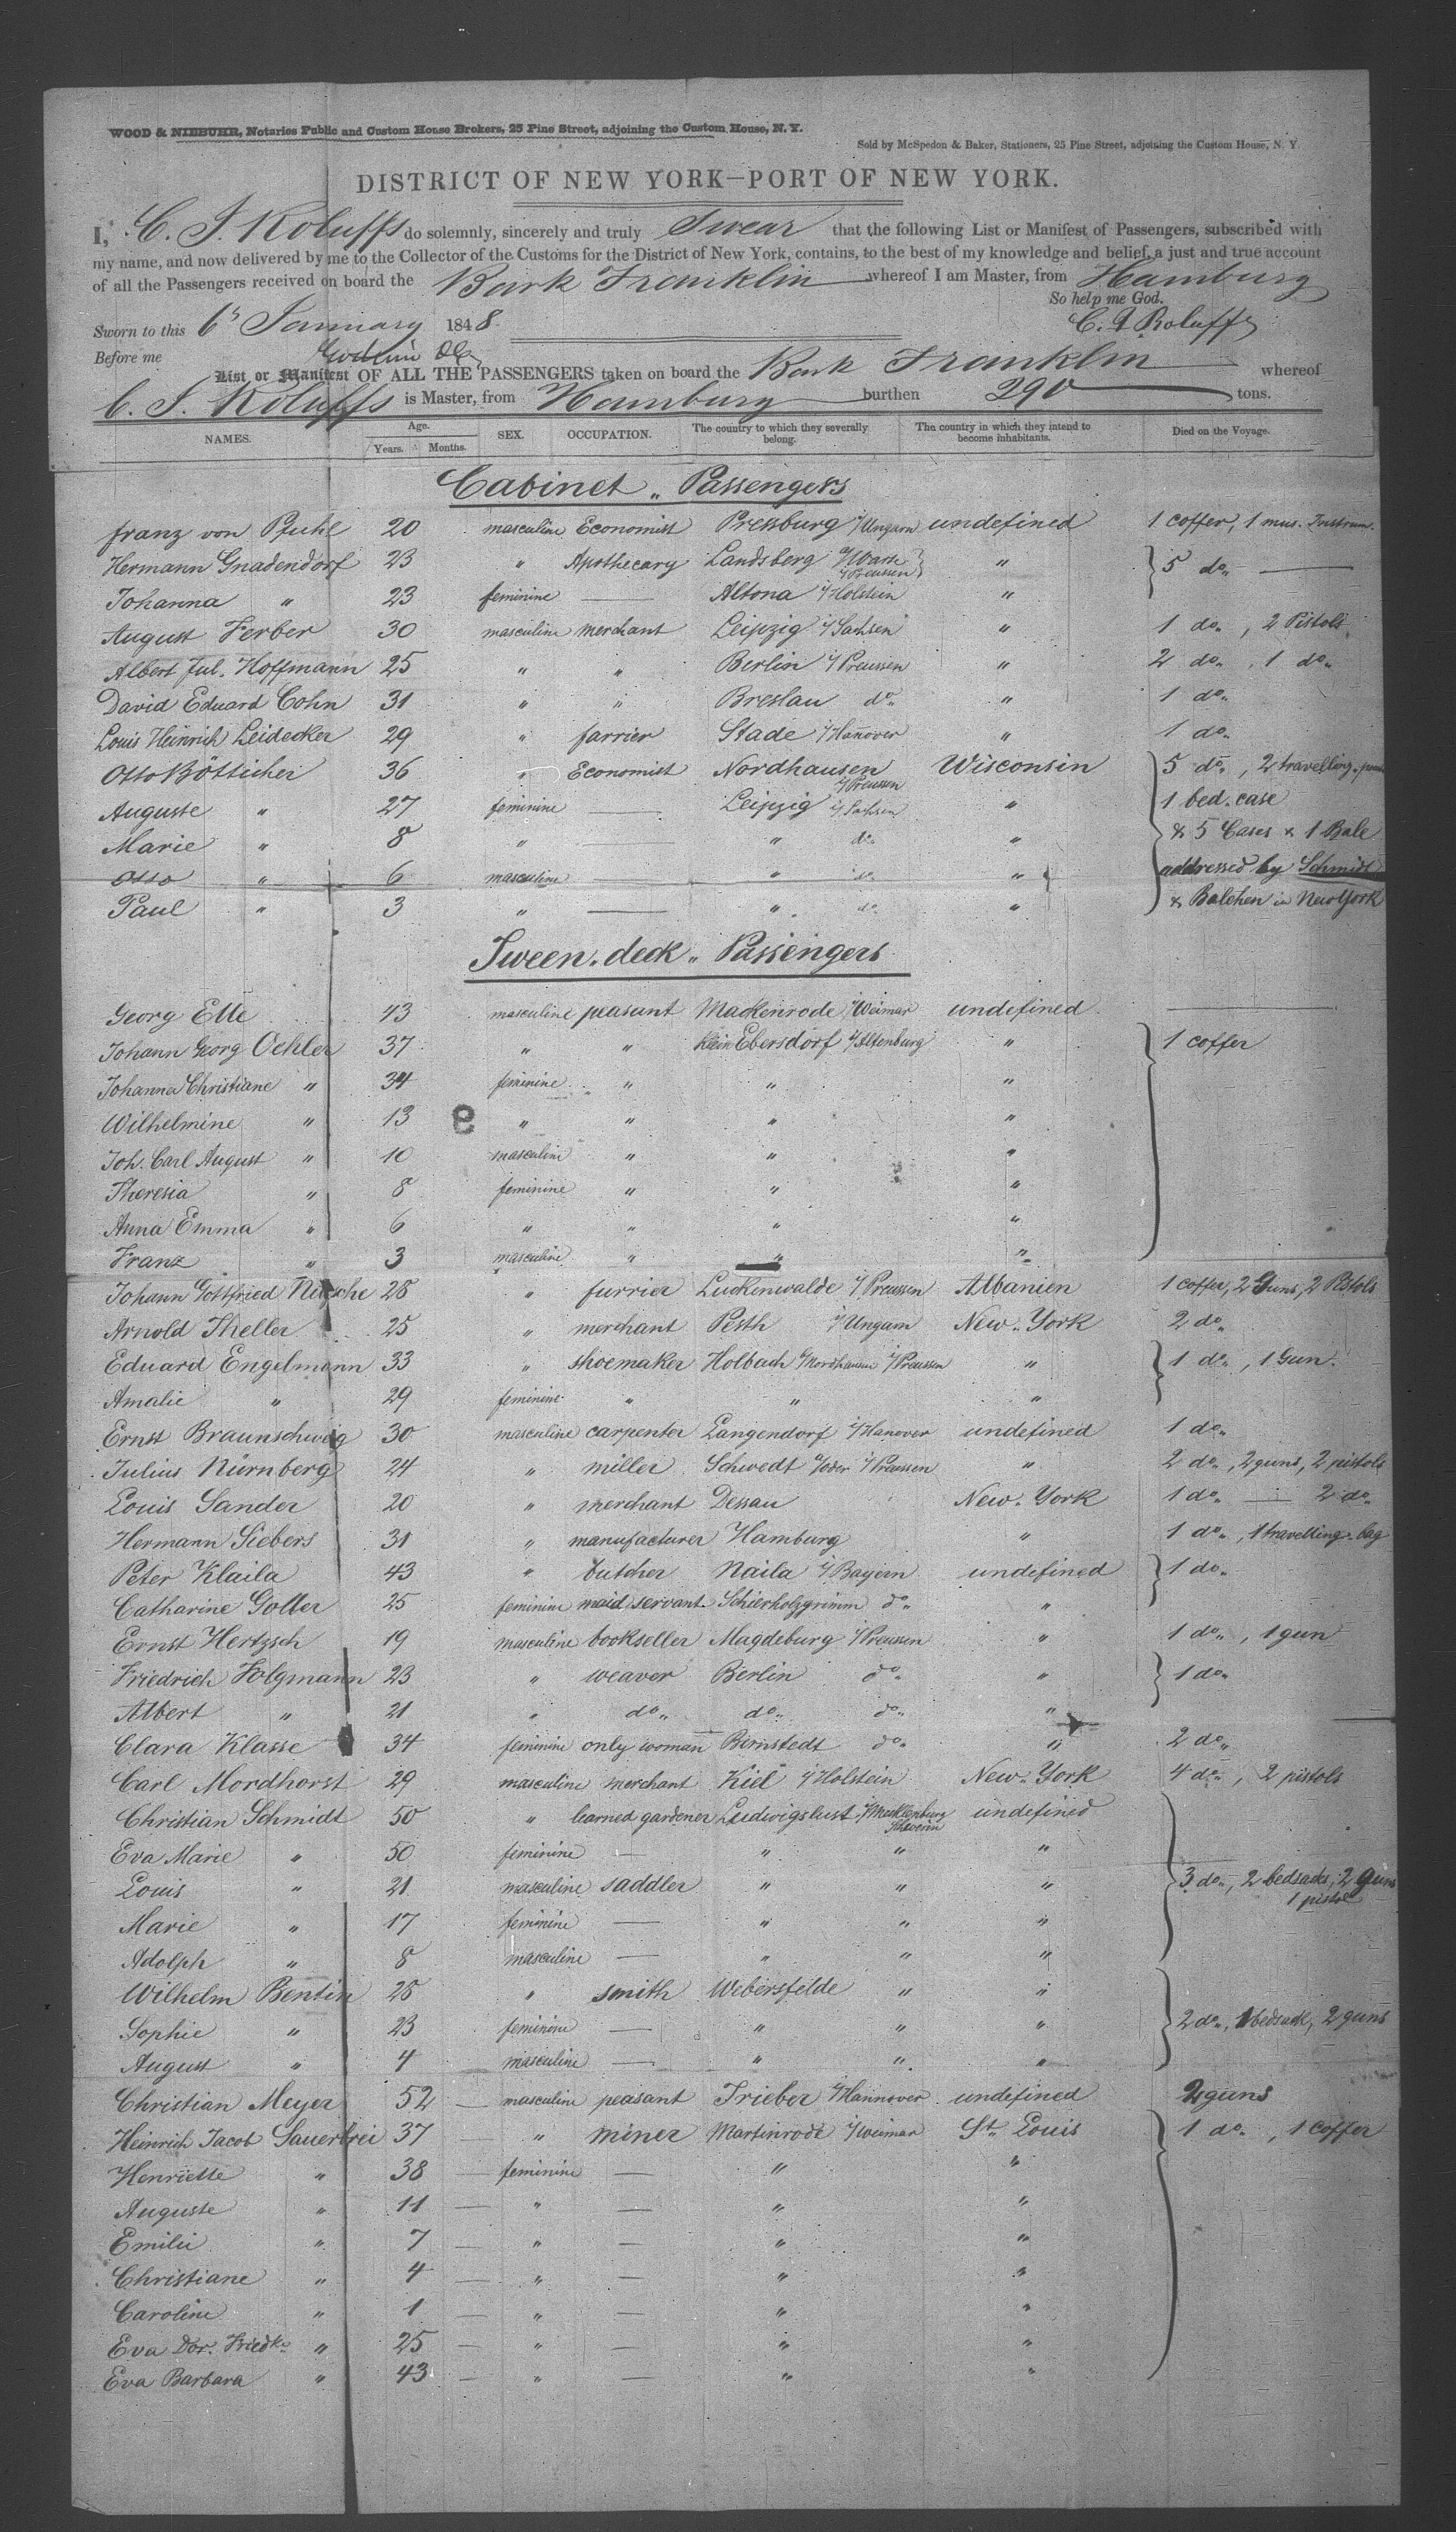 WOOD & NIEBUHR, Notaries Public and Custom House Brokers, 25 Pine Street, adjoining the Custom House, N. Y.
Sold by McSpedon & Baker, Stationers, 25 Pine Street, adjoining the Custom House, N. Y.
DISTRICT OF NEW YORK—PORT OF NEW YORK.
I, C. J. Roluffs do solemnly, sincerely and truly Swear that the following List or Manifest of Passengers, subscribed with
my name, and now delivered by me to the Collector of the Customs for the District of New York, contains, to the best of my knowledge and belief, a just and true account
of all the Passengers received on board the Bark Franklin whereof I am Master, from Hamburg
So help me God.
Sworn to this 6 January 1848. C. J. Roluffs
Before me
List or Manifest OF ALL THE PASSENGERS taken on board the Bark Franklin whereof
C. J. Roluffs is Master, from Hamburg burthen 290 tons.
NAMES. Age. Years. Months. SEX. OCCUPATION. The country to which they severally belong. The country in which they intend to become inhabitants. Died on the Voyage.
Cabinet „ Passengers
Franz von Pfuhl 20 masculine Economist Pressburg i/Ungarn undefined 1 coffer, 1 mus. Instrum.
Hermann Gnadendorf 23 „ Apothecary Landsberg a/Warth i/Preussen „ 5 do„ —
Johanna „ 23 feminine — Altona i/Holstein „
August Ferber 30 masculine merchant Leipzig i/Sachsen „ 1 do„, 2 Pistols
Albert Jul. Hoffmann 25 „ „ Berlin i/Preussen „ 2 do„, 1 do„
David Eduard Cohn 31 „ „ Breslau do„ „ 1 do„
Louis Heinrich Leidecker 29 „ farrier Stade i/Hanover „ 1 do„
Otto Bötticher 36 „ Economist Nordhausen i/Preussen Wisconsin 5 do„, 2 travelling
Auguste „ 27 feminine — Leipzig i/Sachsen „ 1 bed. case
Marie „ 8 „ — „ do„ „ & 5 Cases & 1 Bale
Otto „ 6 masculine — „ do„ „ addressed by Schmidt
Paul „ 3 „ — „ do„ „ & Balchen in New York
Tween-deck „ Passengers
Georg Elle 43 masculine peasant Mackenrode i/Weimar undefined —
Johann Georg Oehler 37 „ „ Klein Ebersdorf i/Altenburg „ 1 coffer
Johanna Christiane „ 34 feminine „ „ „
Wilhelmine „ 13 „ „ „ „
Joh. Carl August „ 10 masculine „ „ „
Theresia „ 8 feminine „ „ „
Anna Emma „ 6 „ „ „ „
Franz „ 3 masculine „ „ „
Johann Gottfried Nitsche 28 „ furrier Luckenwalde i/Preussen Albanien 1 coffer, 2 Guns, 2 Pistols
Arnold Theller 25 „ merchant Pesth i/Ungarn New-York 2 do„
Eduard Engelmann 33 „ shoemaker Holbach i/Preussen „ 1 do„, 1 Gun.
Amalie „ 29 feminine „ „ „
Ernst Braunschweig 30 masculine carpenter Langendorf i/Hanover undefined 1 do„
Julius Nürnberg 24 „ miller Schwedt a/oder i/Preussen „ 2 do„, 2 guns, 2 pistols
Louis Sander 20 „ merchant Dessau New-York 1 do„ — 2 do„
Hermann Siebers 31 „ manufacturer Hamburg „ 1 do„, 1 travelling-bag
Peter Klaila 43 „ butcher Naila i/Bayern undefined 1 do„
Catharine Goller 25 feminine maid servant Schierholzgrimm do„ „
Ernst Hertzsch 19 masculine bookseller Magdeburg i/Preussen „ 1 do„, 1 gun
Friedrich Folgmann 23 „ weaver Berlin do„ „ 1 do„
Albert „ 21 „ do„ do„ do„ „
Clara Klasse 34 feminine only woman Birnstedt do„ „ 2 do„
Carl Mordhorst 29 masculine merchant Kiel i/Holstein New-York 4 do„, 2 pistols
Christian Schmidt 50 „ learned gardener Ludwigslust i/Mecklenburg Schwerin undefined
Eva Marie „ 50 feminine — „ „ „
Louis „ 21 masculine saddler „ „ „ 3 do„, 2 bedsacks, 2 guns 1 pistol
Marie „ 17 feminine — „ „ „
Adolph „ 8 masculine — „ „ „
Wilhelm Bentin 28 „ smith Webersfelde „ „
Sophie „ 23 feminine — „ „ „ 2 do„, 1 bedsack, 2 guns
August „ 4 masculine — „ „ „
Christian Meyer 52 — masculine peasant Trieber i/Hannover undefined 2 guns
Heinrich Jacob Sauerbrei 37 — „ miner Martinrode i/Weimar St. Louis 1 do„, 1 coffer
Henriette „ 38 — feminine — „ „
Auguste „ 11 — „ — „ „
Emilie „ 7 — „ — „ „
Christiane „ 4 — „ — „ „
Caroline „ 1 — „ — „ „
Eva Dor. Friedke „ 25 — „ — „ „
Eva Barbara „ 43 — „ — „ „